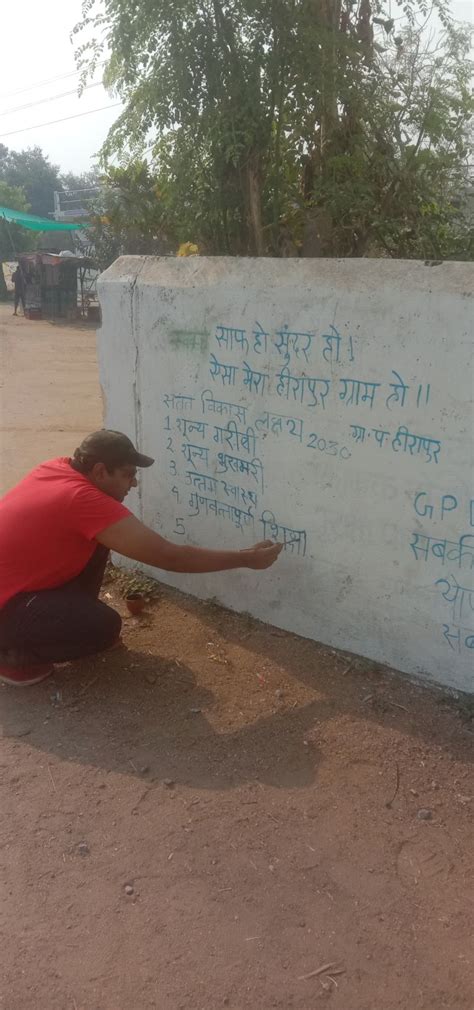 साफ हो सुंदर हो।
ऐसा मेरा हीरापुर ग्राम हो।।
सतत विकास लक्ष्य 2030
ग्रा.पं.हीरापुर
1 शून्य गरीबी
2 शून्य भुखमरी
3. उत्तम स्वास्थ
4 गुणवत्तापूर्ण शिक्षा
5
GP
सबकी
सब